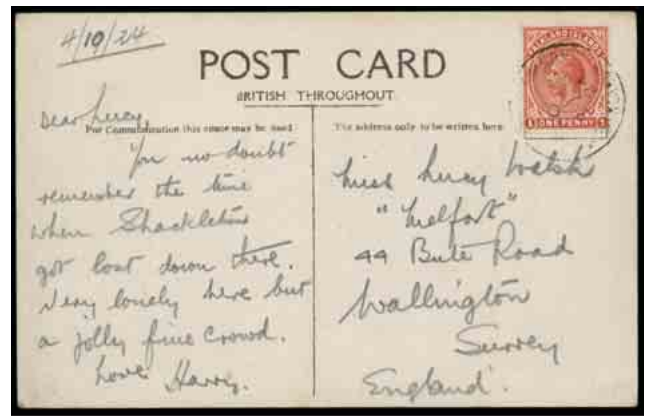 4/10/24
POST CARD
BRITISH THROUGHOUT
FALKLAND ISLANDS
1 ONE PENNY 1
For Communication this space may be used
The address only to be written here
Dear Lucy,
You no doubt
remember the time
when Shackleton
got lost down there.
Very lonely here but
a jolly fine crowd.
Love Harry.
Miss Lucy Welsh
"Melfort"
44 Bute Road
Wallington
Surrey
England.